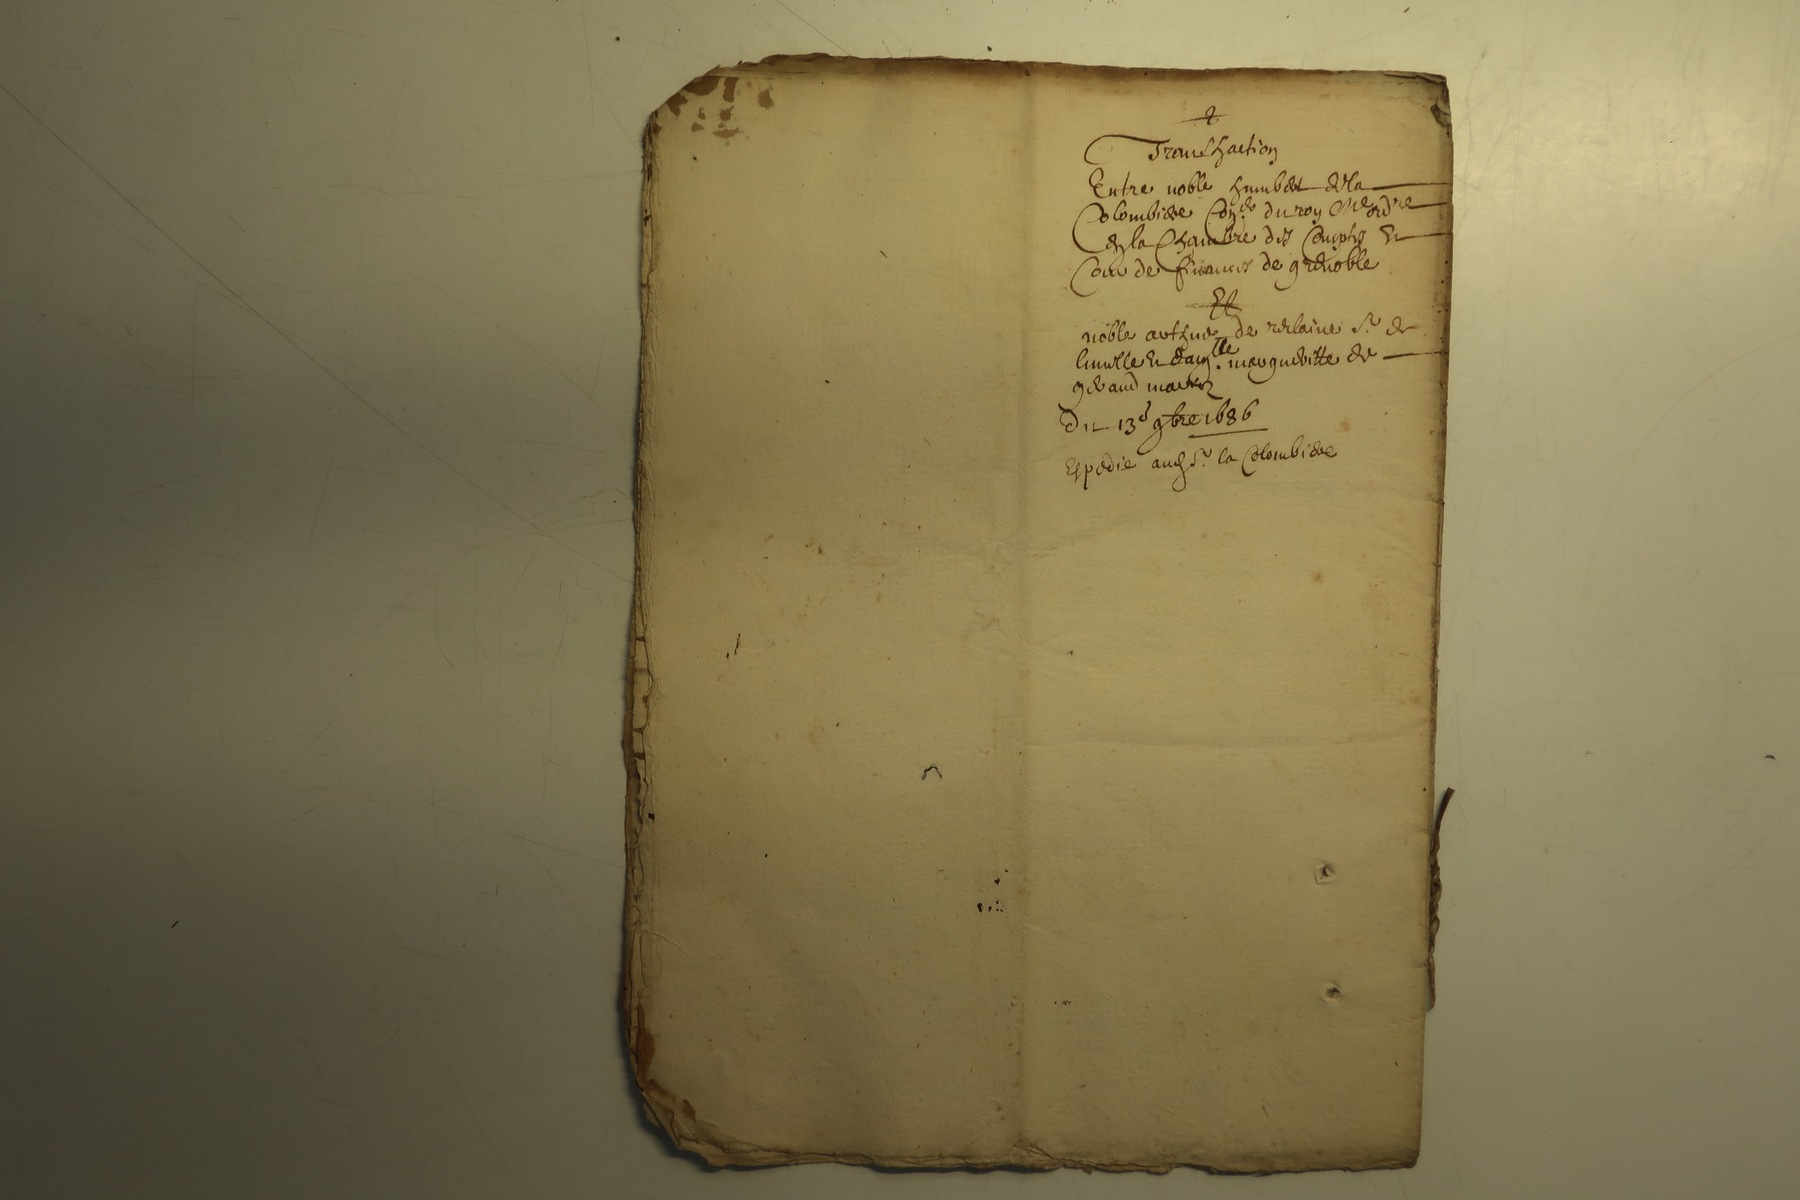 Transhaction
Entre noble humbert dela
Colombiere Con.er du roy Me ord.re
En la Chambre des Comptes Et
Cour de finances de grenoble
Et
noble arthus de S.r de
Et dam.lle margueritte de
marié
Du 13e 9bre 1686
Expedié aud S.r la Colombiere